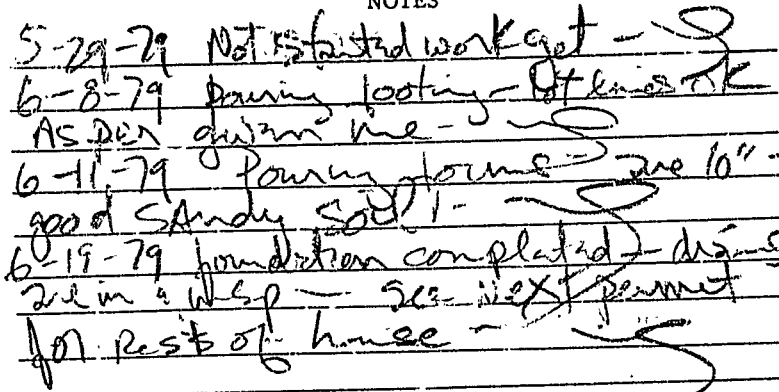 NOTES
5-29-79 Not started work yet -
6-8-79 Pouring footing - lot lines OK
AS Per given me -
6-11-79 Pouring forms - are 10" -
good SAndy Soil! -
6-19-79 foundation completed - drains
are in - see Next permit
for Rest of house -